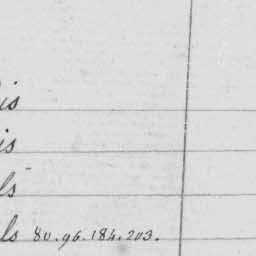 is
is
ls
ls 80.96.184.203.